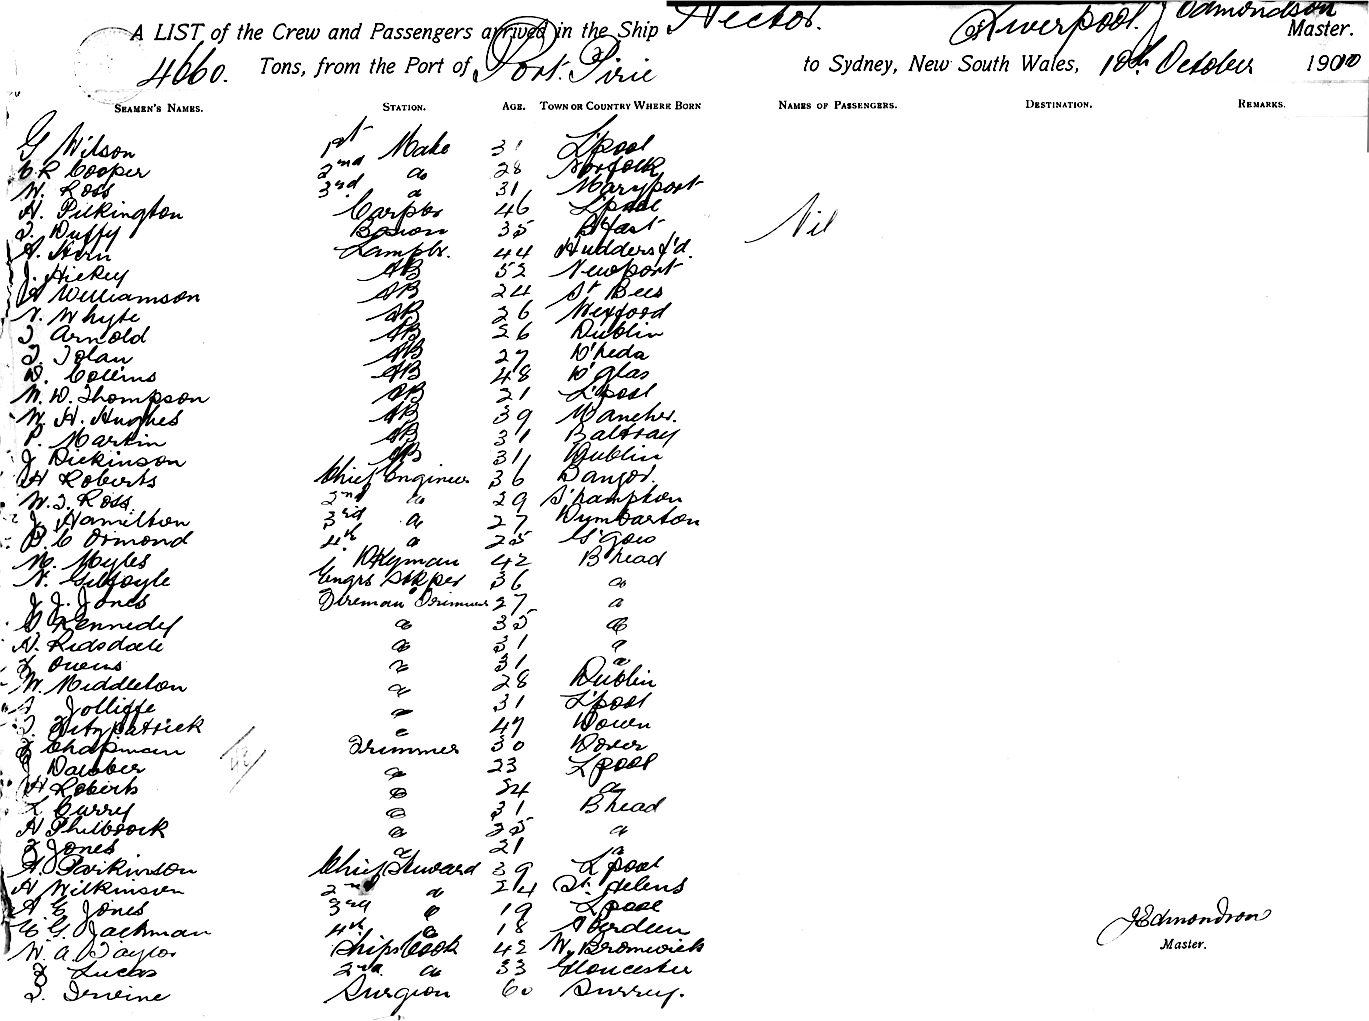 A LIST of the Crew and Passengers arrived in the Ship Hector. of Liverpool. J Edmondson Master.
4660. Tons, from the Port of Port Pirie to Sydney, New South Wales, 18th October 1900
SEAMEN'S NAMES. STATION. AGE. TOWN OR COUNTRY WHERE BORN NAMES OF PASSENGERS. DESTINATION. REMARKS.
G Wilson 1st Mate 31 L'pool
C R Cooper 2nd " 28 Norfolk
W. Ross 3rd " 31 Maryport
H. Pilkington Carptr 46 L'pool Nil
J. Duffy Bosun 35 B'fast
A. Horn Lamptr. 44 Hudders f'd.
J. Hickey AB 52 Newport
A Williamson AB 24 St Bees
N. Whyte AB 26 Wexford
J Arnold AB 26 Dublin
J. Tolan AB 27 D'heda
D. Collins AB 48 D'glas
W. D. Thompson AB 21 L'pool
W. H. Hughes AB 39 Manchr.
P. Martin AB 31 Baltray
J Dickinson AB 31 Dublin
H Roberts Chief Engineer 36 Bangor.
W. J. Ross. 2nd " 29 S'hampton
J. Hamilton 3rd " 27 Dumbarton
B. C Ormond 4th " 25 G'gow
M. Myles Dkyman 42 B'head
N. Gilfoyle Engrs Stkpr 36 "
J. J. Jones Fireman & Trimmer 27 "
Kennedy " 35 "
N. Ridsdale " 31 "
Owens " 31 "
W. Middleton " 28 Dublin
Jolliffe " 31 L'pool
J. Fitzpatrick " 47 Down
Chapman Trimmer 30 Dover
J Dauber " 23 L'pool
H Roberts " 24 "
L Curry " 31 B'head
H Philbrock " 25 "
J Jones " 21 "
H. Parkinson Chief Steward 39 L'pool
H Wilkinson 2nd " 24 St. Helens
A E Jones 3rd " 19 L'pool
C. G. Jackman 4th " 18 Aberdeen
W. A. Taylor Ships Cook 42 W. Bromwich
J Lucas 2nd " 33 Gloucester
J. Irvine Surgeon 60 Surrey.
J Edmondson
Master.